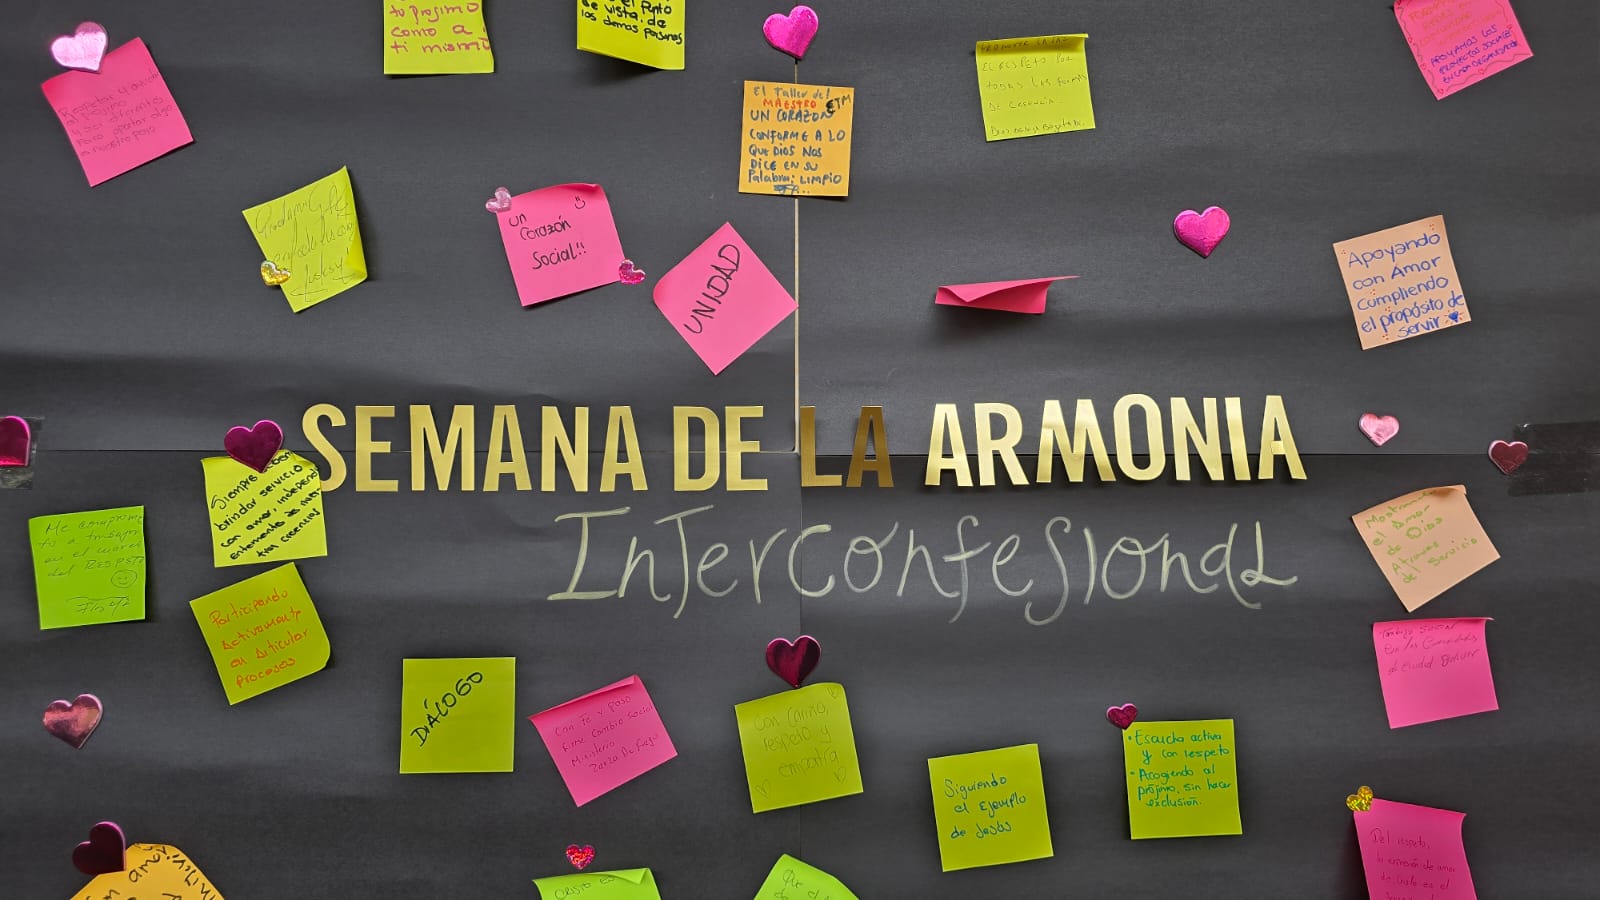 tu proximo
como a
ti mismo
el Punto
de vista de
los demas personas
El Taller del
MAESTRO ETM
UN CORAZON
CONFORME A LO
QUE DIOS NOS
DICE EN SU
Palabra; LIMPIO
EL RESPETO POR
TODAS LAS FORMAS
DE
APOYAMOS LOS
PROYECTOS SOCIALES
Respetar y
un
Corazón
Social!!
UNIDAD
Apoyando
con Amor
Cumpliendo
el propósito de
servir
SEMANA DE LA ARMONIA
InTerconfesional
Siempre
brindar servicio
con amor, independi
entemente de nues
tras creencias
Me comprome
to a trabajar
en el
del RESPETO
Participando
Activamente
en Articular
procesos
Mostrando
el Amor
de Dios
Atraves
del Servicio
Trabajo Social
en las Comunidades
de Ciudad Bolivar
DIÁLOGO
Con Fe y Paso
firme Cambio Social
Ministerio
Zarza De Fuego
Con Cariño,
respeto y
empatía
Siguiendo
el Ejemplo
de Jesús
• Escucha activa
y con respeto
• Acogiendo al
prójimo, sin hacer
exclusión.
amor
CRISTO ES
Que
Del respeto,
de amor
es el